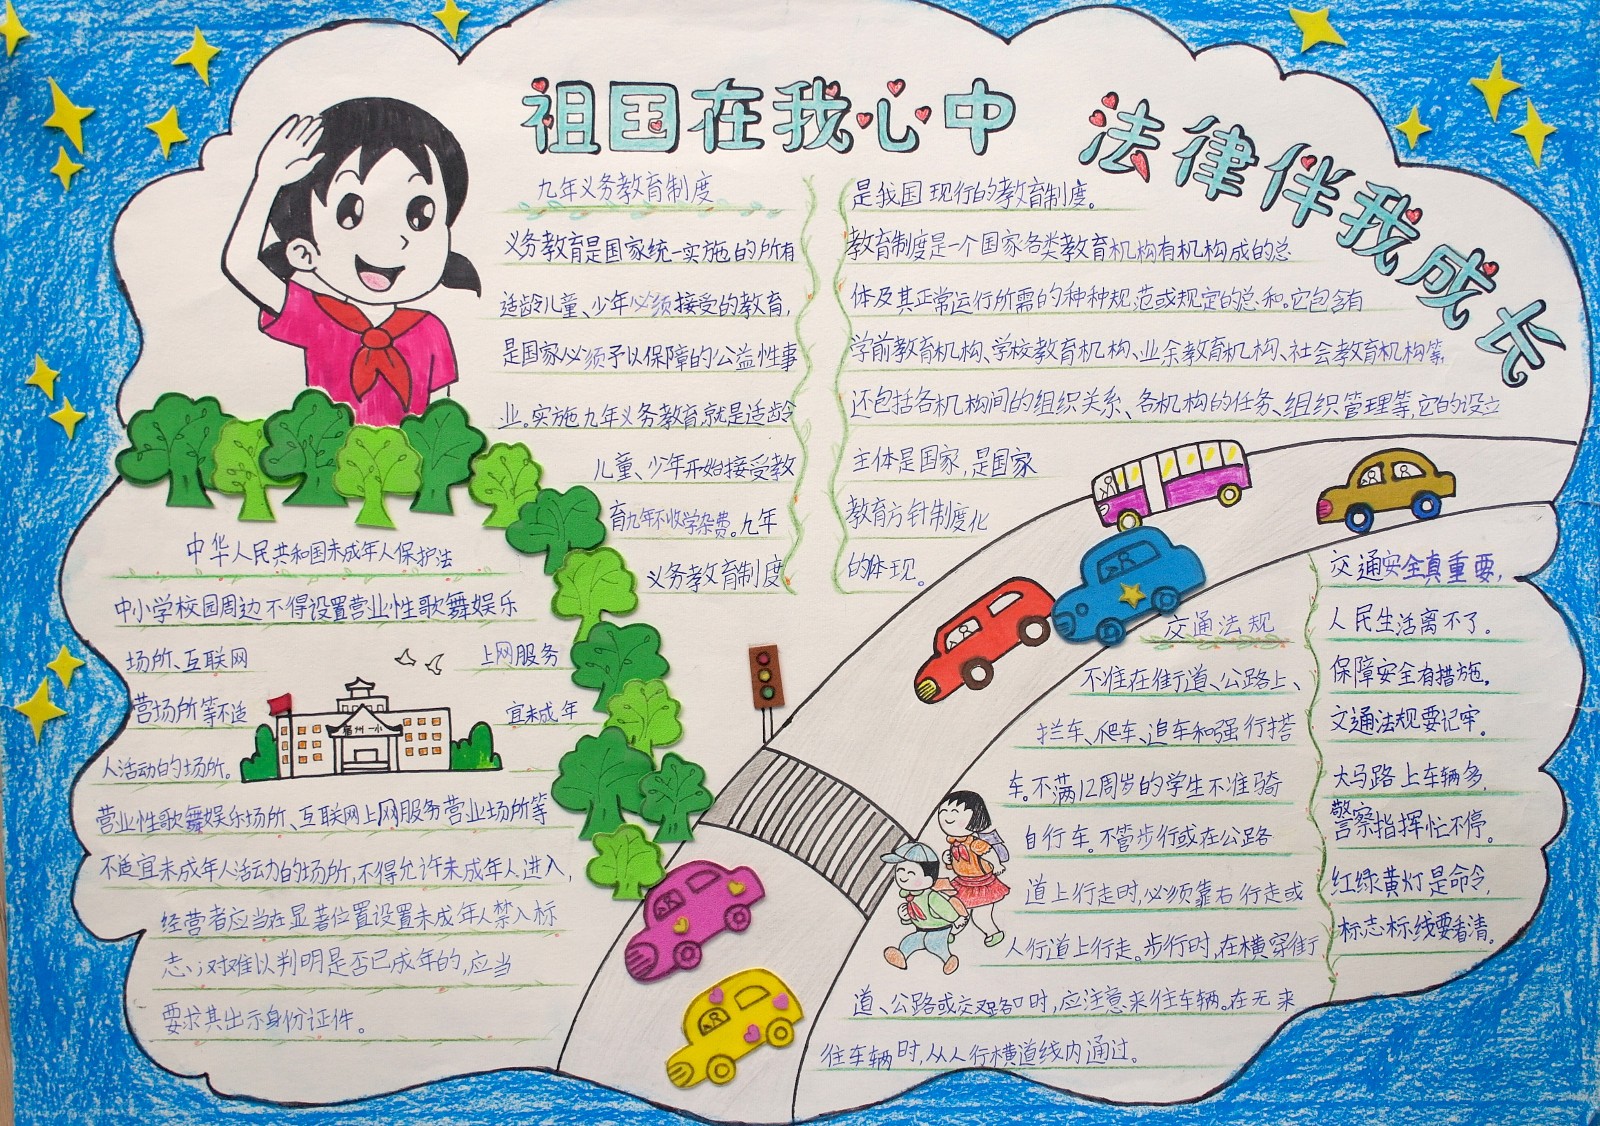 祖国在我心中 法律伴我成长
九年义务教育制度
义务教育是国家统一实施的所有
适龄儿童、少年必须接受的教育,
是国家必须予以保障的公益性事
业。实施九年义务教育,就是适龄
儿童、少年开始接受教
育九年不收学杂费。九年
义务教育制度
是我国现行的教育制度。
教育制度是一个国家各类教育机构有机构成的总
体及其正常运行所需的种种规范或规定的总和。它包含有
学前教育机构、学校教育机构、业余教育机构、社会教育机构等,
还包括各机构间的组织关系、各机构的任务、组织管理等,它的设立
主体是国家,是国家
教育方针制度化
的体现。
中华人民共和国未成年人保护法
中小学校园周边不得设置营业性歌舞娱乐
场所、互联网 上网服务
营场所等不适 宜未成年
人活动的场所。
福州一小
营业性歌舞娱乐场所、互联网上网服务营业场所等
不适宜未成年人活动的场所,不得允许未成年人进入,
经营者应当在显著位置设置未成年人禁入标
志;对难以判明是否已成年的,应当
要求其出示身份证件。
交通法规
不准在街道、公路上、
拦车、爬车、追车和强行搭
车。不满12周岁的学生不准骑
自行车。不管步行或在公路
道上行走时,必须靠右行走或
人行道上行走。步行时,在横穿街
道、公路或交叉路口时,应注意来往车辆。在无来
往车辆时,从人行横道线内通过。
交通安全真重要,
人民生活离不了。
保障安全有措施,
交通法规要记牢。
大马路上车辆多,
警察指挥忙不停。
红绿黄灯是命令,
标志标线要看清。